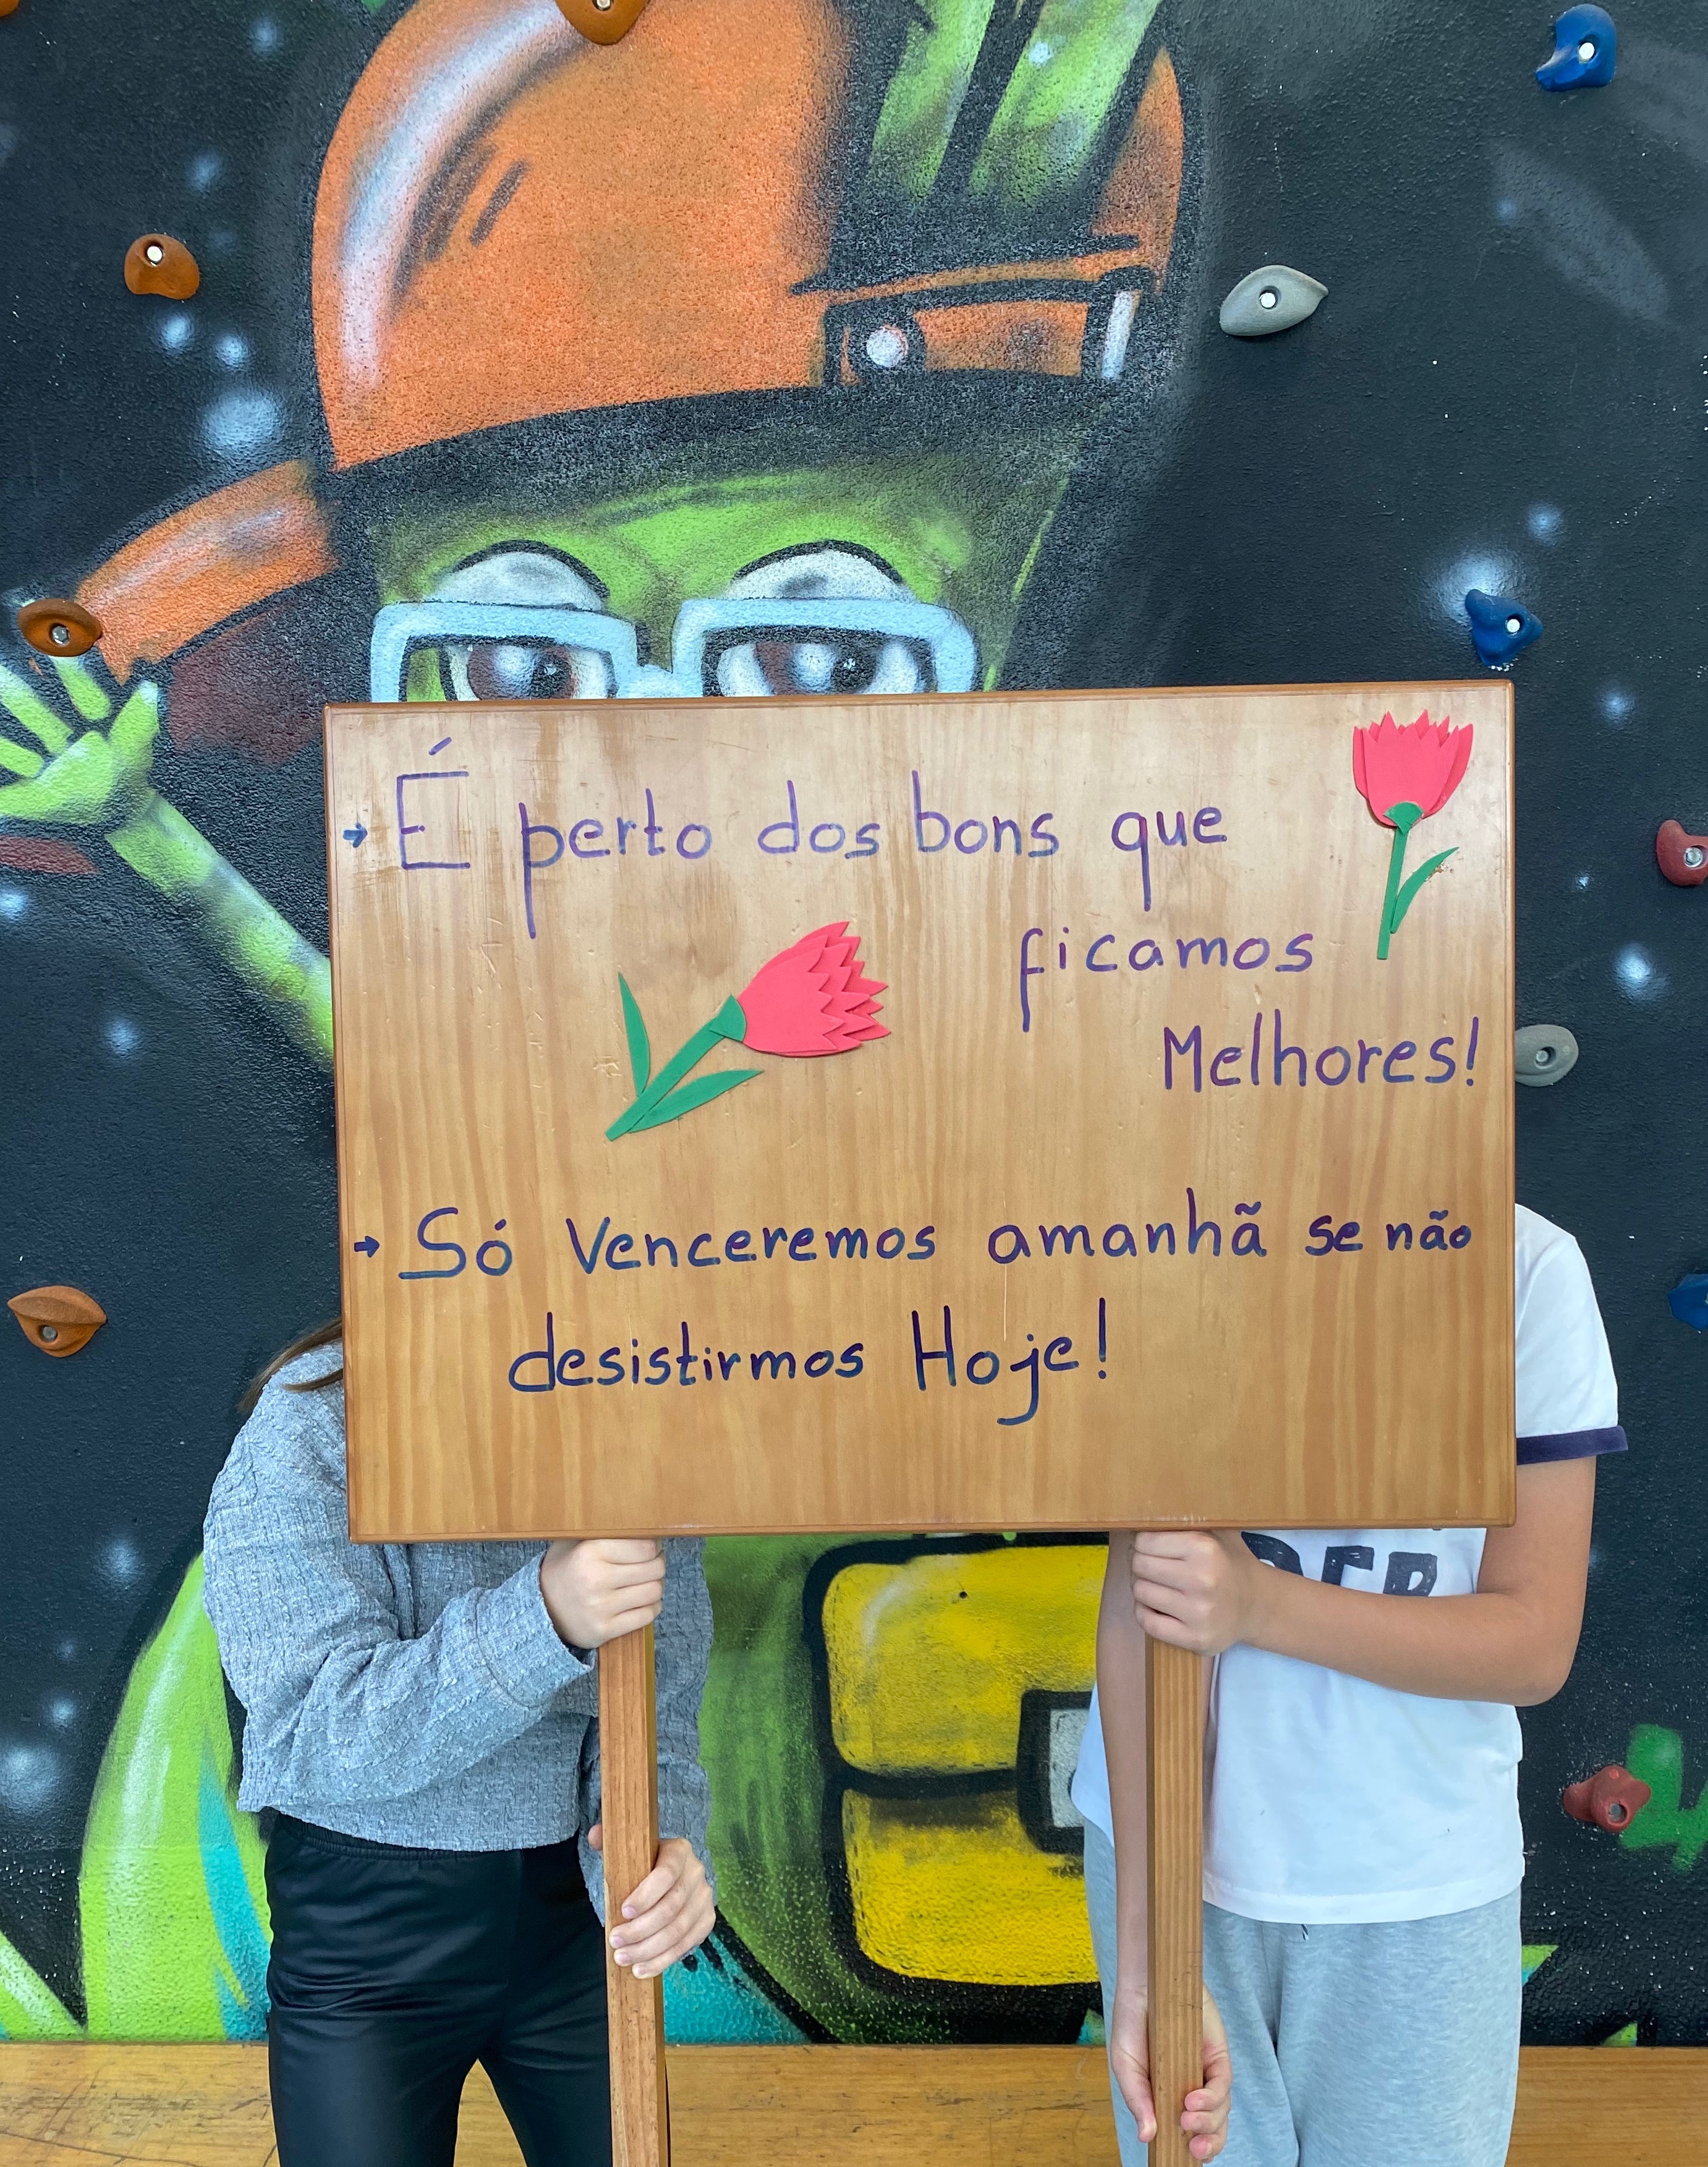 → É perto dos bons que
ficamos
Melhores!
→ Só Venceremos amanhã se não
desistirmos Hoje!